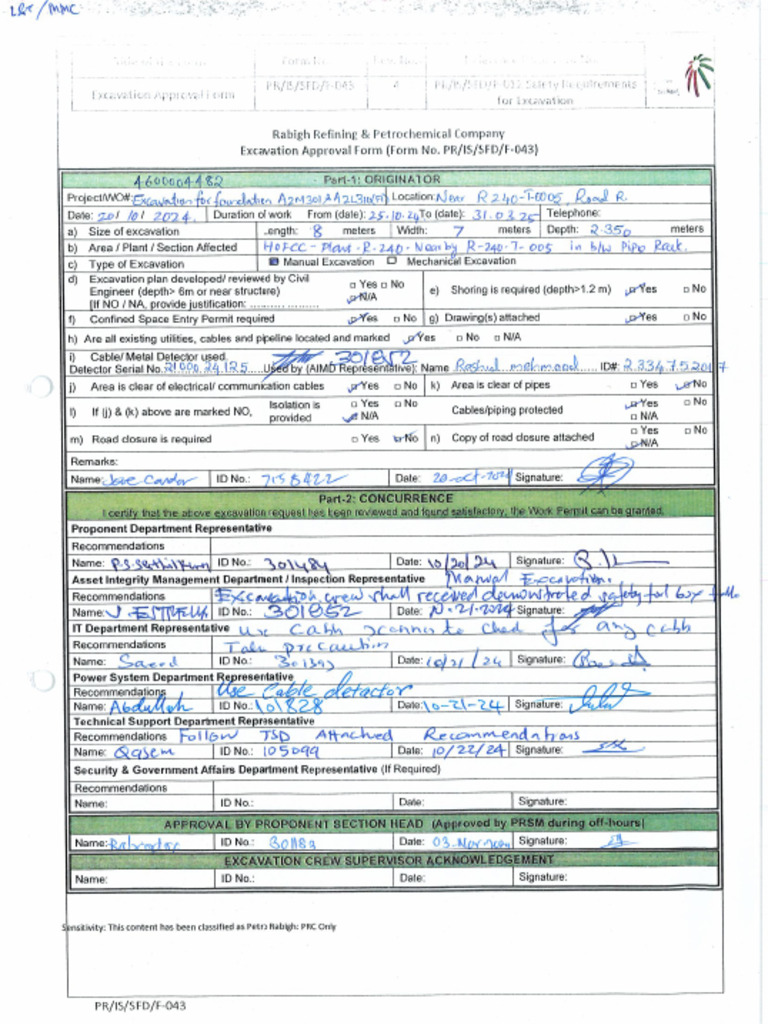 L&T / MMC
Excavation Approval Form PR/IS/SFD/F-043 4 PR/IS/SFD/P-012 Safety Requirements
for Excavation
Rabigh Refining & Petrochemical Company
Excavation Approval Form (Form No. PR/IS/SFD/F-043)
4600004482 Part-1: ORIGINATOR
Project/WO# Excavation for foundation Location: Near R240-T-0005, Road R.
Date: 20/10/2024. Duration of work From (date): 25.10.24 To (date): 31.03.25 Telephone:
a) Size of excavation Length: 8 meters Width: 7 meters Depth: 2.350 meters
b) Area / Plant / Section Affected HOFCC - Plant-R-240 - Nearby R-240-T-005 in b/w Pipe Rack.
c) Type of Excavation Manual Excavation Mechanical Excavation
d) Excavation plan developed/ reviewed by Civil
Engineer (depth> 6m or near structure) Yes No
[If NO / NA, provide justification: .................. N/A
e) Shoring is required (depth>1.2 m) Yes No
f) Confined Space Entry Permit required Yes No g) Drawing(s) attached Yes No
h) Are all existing utilities, cables and pipeline located and marked Yes No N/A
i) Cable/ Metal Detector used 301852
Detector Serial No. 21000.24.125 Used by (AIMD Representative): Name Rashid mehmood ID#:
j) Area is clear of electrical/ communication cables Yes No k) Area is clear of pipes Yes No
l) If (j) & (k) above are marked NO, Isolation is provided Yes No N/A Cables/piping protected Yes No N/A
m) Road closure is required Yes No n) Copy of road closure attached Yes No N/A
Remarks:
Name: ID No.: 7158422 Date: 20-oct-2024 Signature:
Part-2: CONCURRENCE
I certify that the above excavation request has been reviewed and found satisfactory, the Work Permit can be granted.
Proponent Department Representative
Recommendations
Name: ID No.: 301484 Date: 10/20/24 Signature:
Asset Integrity Management Department / Inspection Representative Manual Excavation.
Recommendations Excavation crew shall received demonstrated safety
Name: ID No.: 301852 Date: Signature:
IT Department Representative use cable scanner to check for any cable
Recommendations Take precaution
Name: Saeed ID No.: Date: 10/21/24 Signature:
Power System Department Representative
Recommendations Use Cable detactor
Name: Abdullah ID No.: 101828 Date: 10-21-24 Signature:
Technical Support Department Representative
Recommendations Follow TSD Attached Recommendations
Name: Qasem ID No.: 105099 Date: 10/22/24 Signature:
Security & Government Affairs Department Representative (If Required)
Recommendations
Name: ID No.: Date: Signature:
APPROVAL BY PROPONENT SECTION HEAD (Approved by PRSM during off-hours)
Name: ID No.: Date: 03 Nov Signature:
EXCAVATION CREW SUPERVISOR ACKNOWLEDGEMENT
Name: ID No.: Date: Signature:
Sensitivity: This content has been classified as Petro Rabigh: PRC Only
PR/IS/SFD/F-043